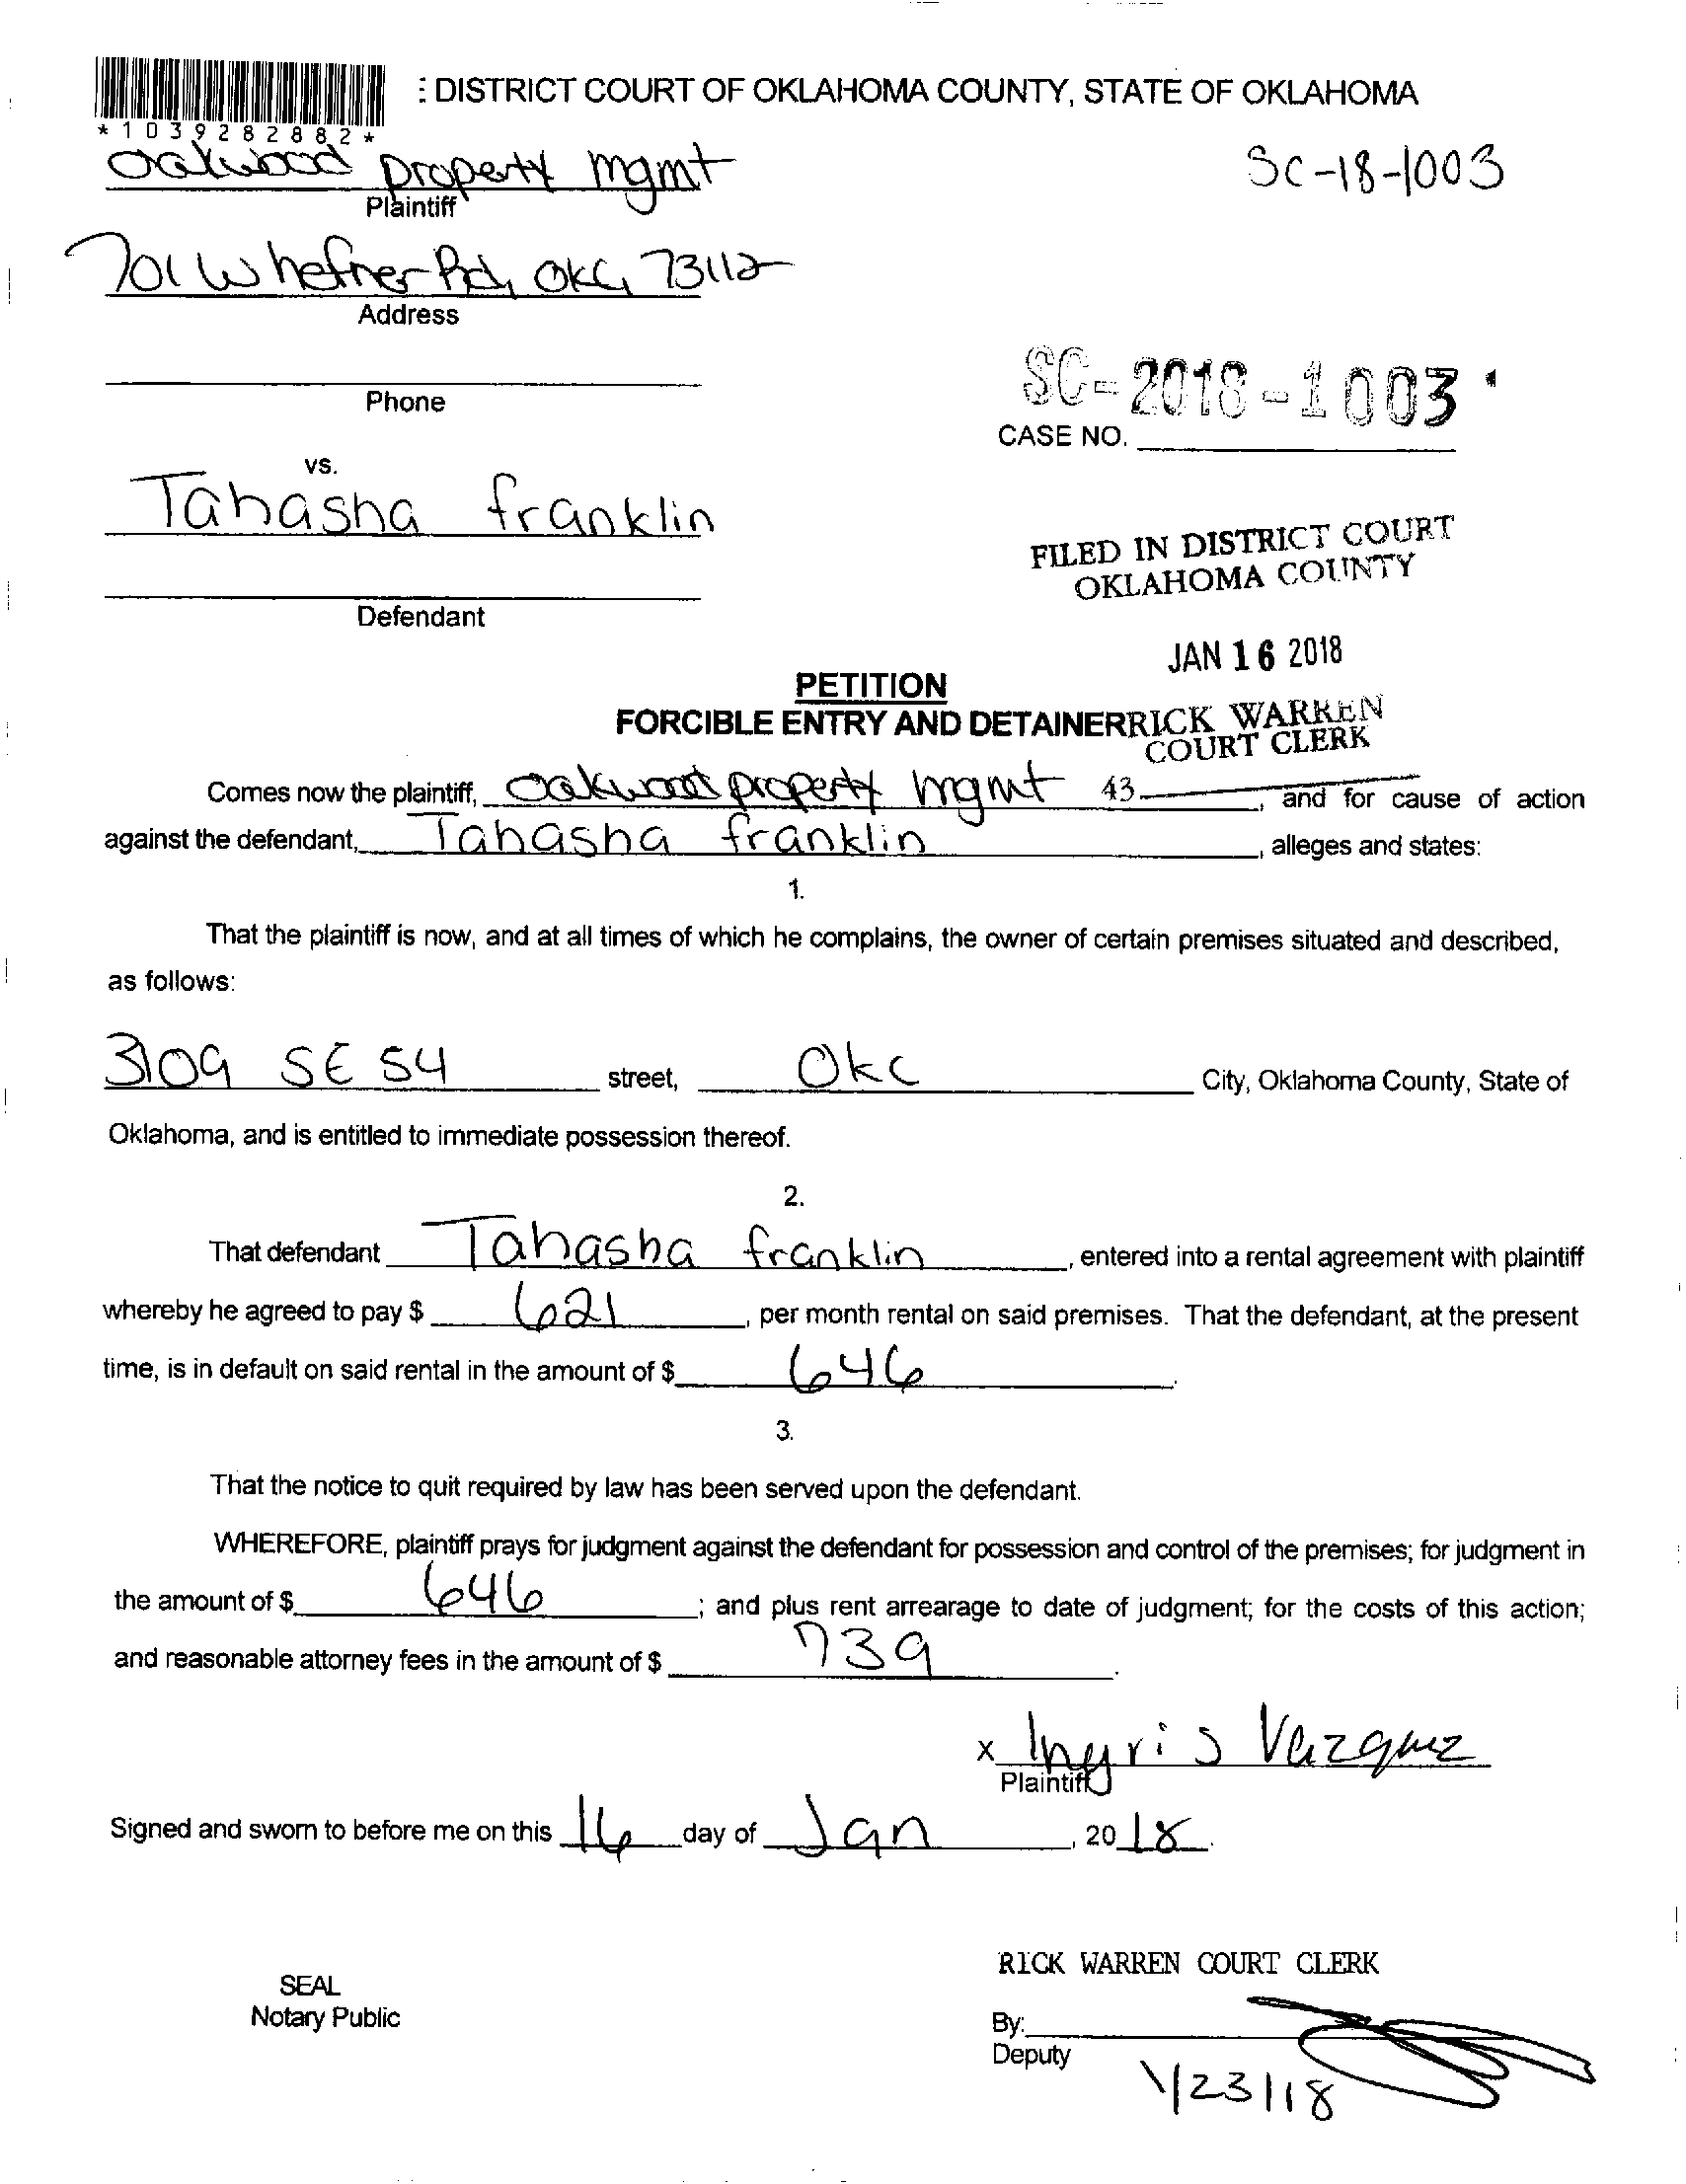 : DISTRICT COURT OF OKLAHOMA COUNTY, STATE OF OKLAHOMA
*1039282882*
Oakwood property mgmt
SC-18-1003
Plaintiff
701 W hefner Rd, OKC, 73112
Address
SC-2018-1003
Phone
CASE NO.
vs.
Tahasha franklin
FILED IN DISTRICT COURT
OKLAHOMA COUNTY
Defendant
JAN 16 2018
PETITION
FORCIBLE ENTRY AND DETAINER RICK WARREN
COURT CLERK
Comes now the plaintiff, Oakwood property mgmt 43 , and for cause of action
against the defendant, Tahasha franklin , alleges and states:
1.
That the plaintiff is now, and at all times of which he complains, the owner of certain premises situated and described,
as follows:
3109 SE 54 street, Okc City, Oklahoma County, State of
Oklahoma, and is entitled to immediate possession thereof.
2.
That defendant Tahasha franklin , entered into a rental agreement with plaintiff
whereby he agreed to pay $ 621 , per month rental on said premises. That the defendant, at the present
time, is in default on said rental in the amount of $ 646 .
3.
That the notice to quit required by law has been served upon the defendant.
WHEREFORE, plaintiff prays for judgment against the defendant for possession and control of the premises; for judgment in
the amount of $ 646 ; and plus rent arrearage to date of judgment; for the costs of this action;
and reasonable attorney fees in the amount of $ 739 .
x Ingris Vazquez
Plaintiff
Signed and sworn to before me on this 16 day of Jan , 20 18 .
RICK WARREN COURT CLERK
SEAL
Notary Public
By:
Deputy
1/23/18